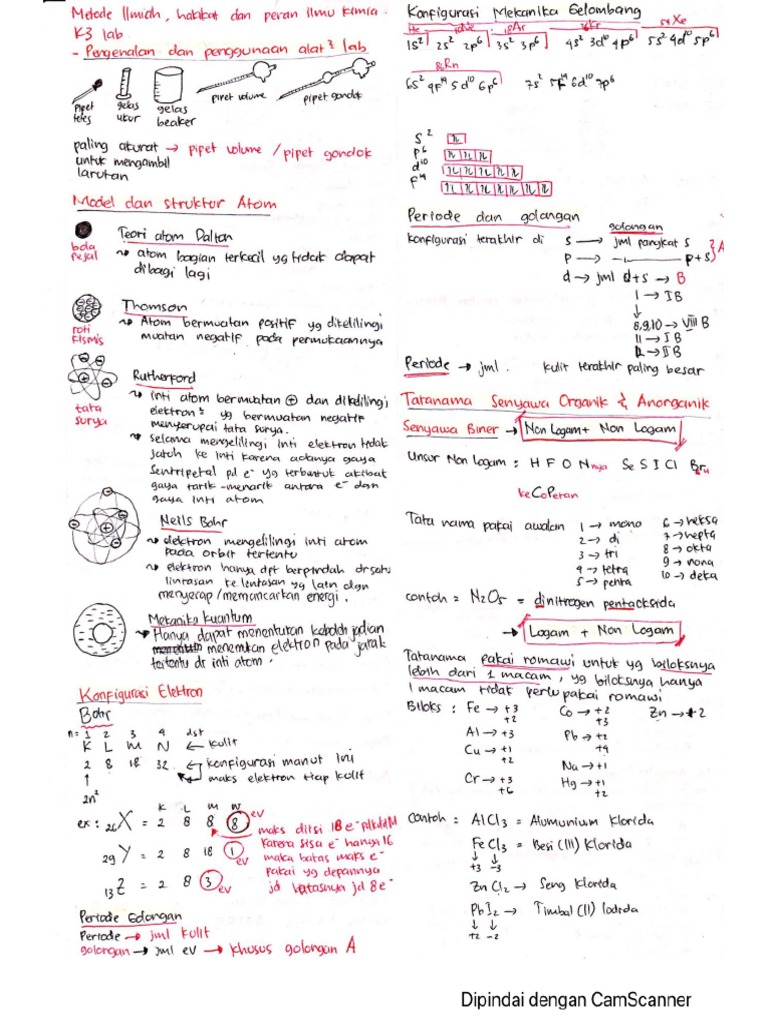 Metode Ilmiah, hakikat dan peran ilmu kimia.
K3 lab
- Pengenalan dan penggunaan alat² lab
pipet tetes
gelas ukur
gelas beaker
pipet volume
pipet gondok
paling akurat → pipet volume / pipet gondok
untuk mengambil
larutan
Model dan struktur Atom
bola pejal
Teori atom Dalton
atom bagian terkecil yg tidak dapat
dibagi lagi
roti kismis
Thomson
Atom bermuatan positif yg dikelilingi
muatan negatif pada permukaannya
tata surya
Rutherford
inti atom bermuatan ⊕ dan dikelilingi
elektron² yg bermuatan negatif
menyerupai tata surya.
selama mengelilingi inti elektron tidak
jatuh ke inti karena adanya gaya
sentripetal pd e⁻ yg terbentuk akibat
gaya tarik-menarik antara e⁻ dgn
gaya inti atom
Neils Bohr
elektron mengelilingi inti atom
pada orbit tertentu
elektron hanya dpt berpindah dr satu
lintasan ke lentasan yg lain dgn
menyerap/memancarkan energi.
Mekanika kuantum
Hanya dapat menentukan kebolehjadian
menemukan elektron pada jarak
tertentu dr inti atom.
Konfigurasi Elektron
Bohr
n= 1 2 3 4 dst
K L M N ← kulit
2 8 18 32 ← konfigurasi manut ini
↑ maks elektron tiap kulit
2n²
K L M N
ex: ₂₆X = 2 8 8 8 ev
₂₉Y = 2 8 18 1 ev
₁₃Z = 2 8 3 ev
maks diisi 18 e⁻
karena sisa e⁻ hanya 16
maka batas maks e⁻
pakai yg depannya
jd batasnya jd 8e⁻
Periode Golongan
Periode → jml kulit
golongan → jml ev → khusus golongan A
Konfigurasi Mekanika Gelombang
He 10Ne 18Ar 36Kr 54Xe
1s² 2s² 2p⁶ 3s² 3p⁶ 4s² 3d¹⁰ 4p⁶ 5s² 4d¹⁰ 5p⁶
86Rn
6s² 4f¹⁴ 5d¹⁰ 6p⁶ 7s² 5f¹⁴ 6d¹⁰ 7p⁶
s²
p⁶
d¹⁰
f¹⁴
Periode dan golongan
golongan
konfigurasi terakhir di s → jml pangkat s
p → p+s } A
d → jml d+s → B
1 → IB
↓
8,9,10 → VIII B
11 → IB
12 → IIB
Periode → jml. kulit terakhir paling besar
Tatanama Senyawa Organik & Anorganik
Senyawa Biner → Non Logam + Non Logam
Unsur Non Logam : H F O N nya Se S I Cl Br u
ke C o P eran
Tata nama pakai awalan
1 → mono
2 → di
3 → tri
4 → tetra
5 → penta
6 → heksa
7 → hepta
8 → okta
9 → nona
10 → deka
contoh = N₂O₅ = dinitrogen pentaoksida
→ Logam + Non Logam
Tatanama pakai romawi untuk yg biloksnya
lebih dari 1 macam, yg biloksnya hanya
1 macam tidak perlu pakai romawi
Biloks : Fe → +3 +2
Al → +3
Cu → +1 +2
Cr → +3 +6
Co → +2 +3
Pb → +2 +4
Na → +1
Hg → +1 +2
Zn → +2
Contoh : AlCl₃ = Alumunium klorida
FeCl₃ = Besi (III) klorida
↓ ↓
+3 -3
ZnCl₂ → Seng klorida
PbI₂ → Timbal (II) Iodida
↓ ↓
+2 -2
Dipindai dengan CamScanner